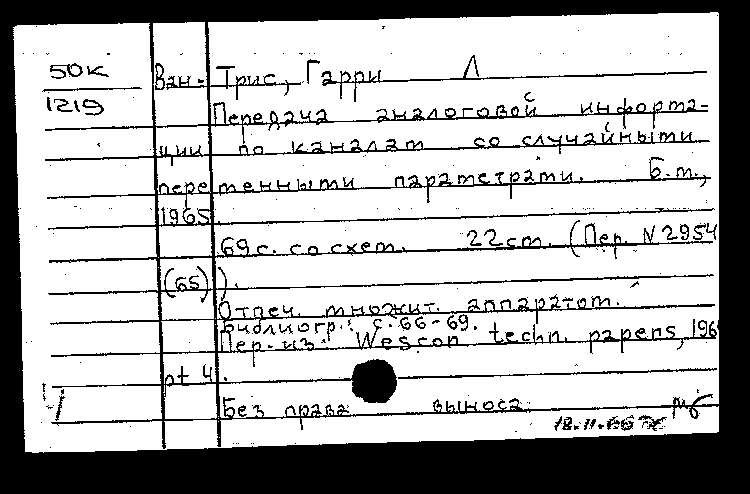 50к
1219
Ван-Трис, Гарри Л
Передача аналоговой информа-
ции по каналам со случайными
переменными параметрами. Б.м.,
1965.
69с. со схем. 22cm. (Пер. N 2954
(65)).
Отпеч. множит. аппаратом.
Библиогр.: с.66-69.
Пер. из: Wescon techn. papers, 196
pt 4.
Без права выноса